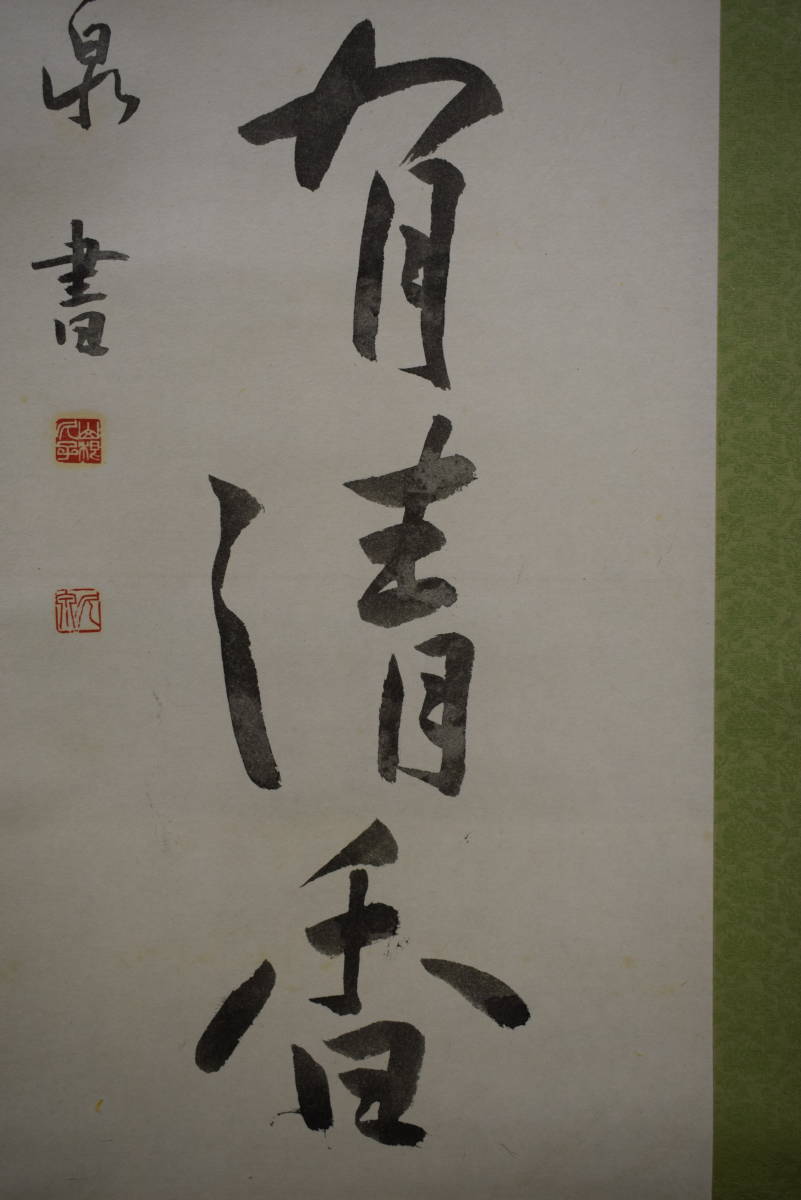 有清香
泉書